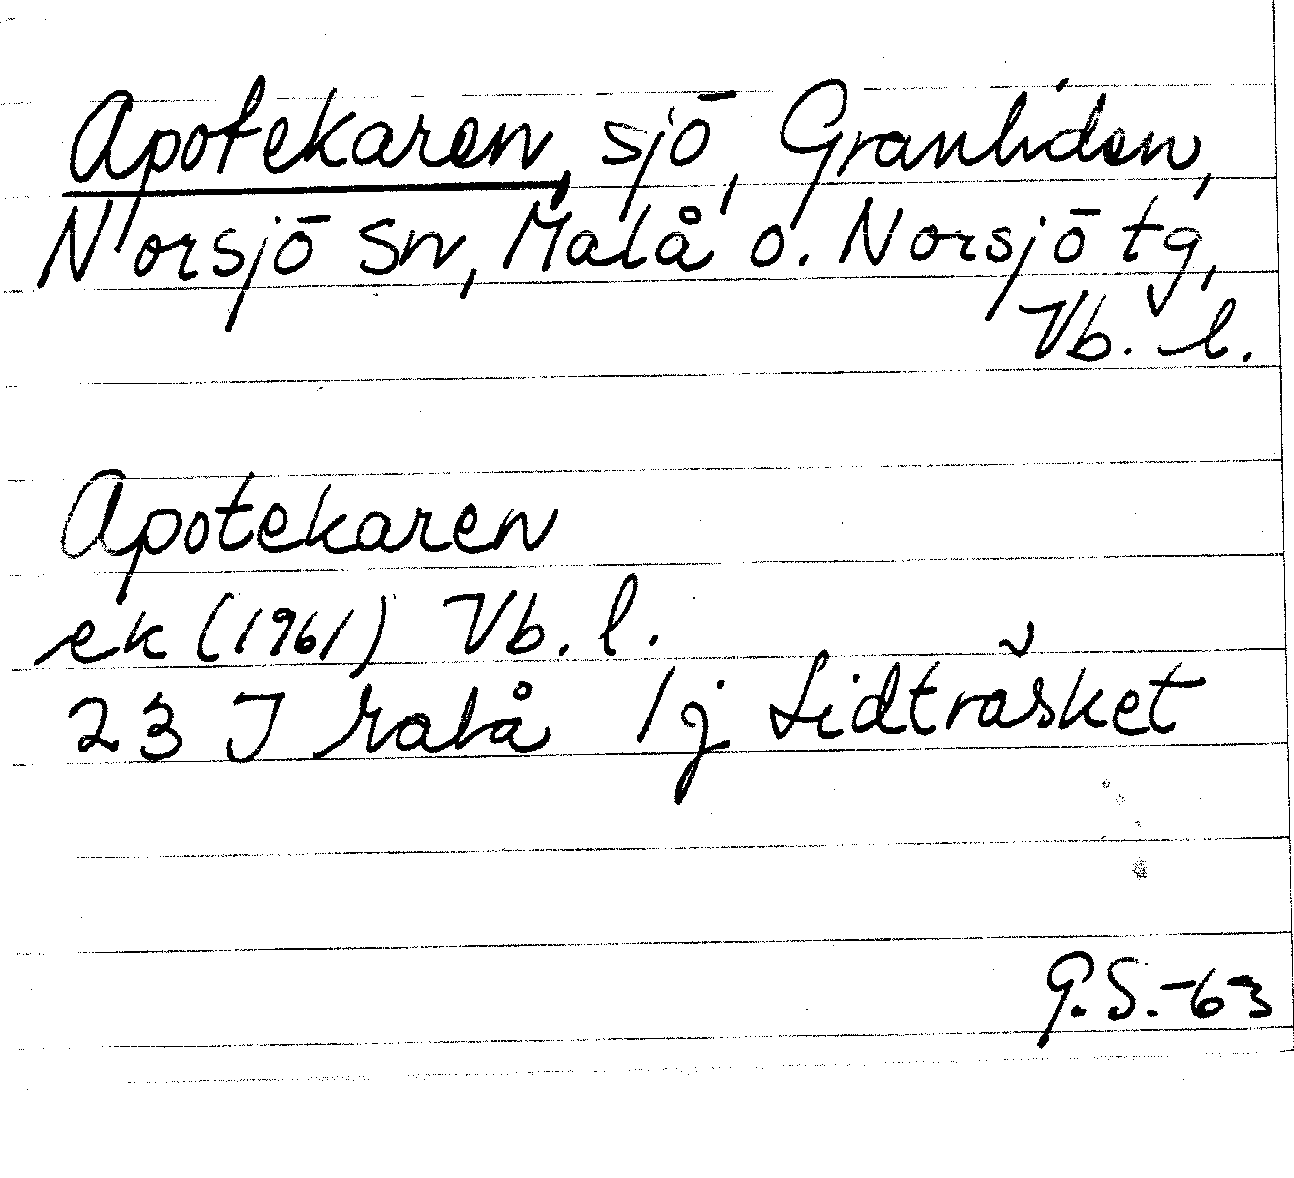 Apotekaren, sjö, Granliden,
Norsjö sn, Malå o. Norsjö tg,
Vb. l.
Apotekaren
ek (1961) Vb. l.
23 J Malå 1j Lidträsket
G.S.-63